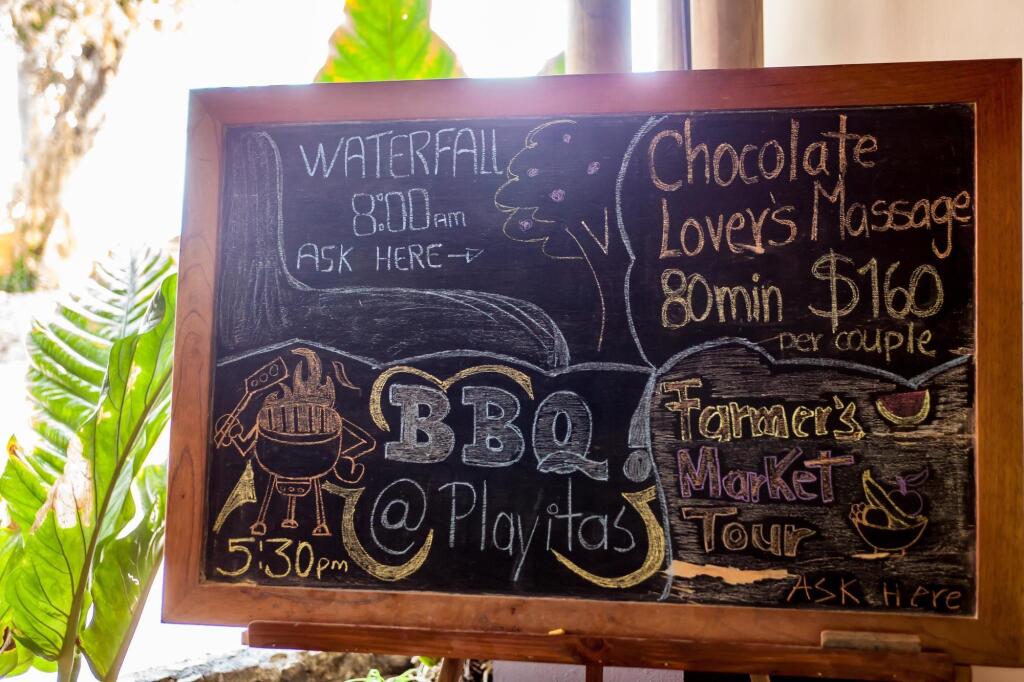 WATERFALL
8:00am
ASK HERE →
Chocolate
Lover's Massage
80min $160
per couple
BBQ!
@Playitas
5:30pm
Farmer's
Market
Tour
ASK Here